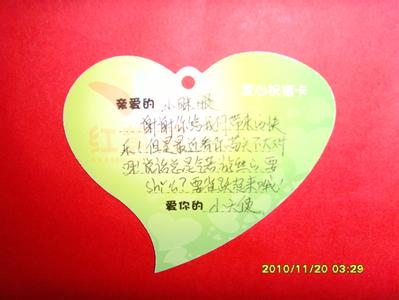 爱心祝福卡
亲爱的 小眯眼
谢谢你给我们带来的快
乐!但是最近看你苗头不太对
说话总是 要
shi么?要 起来哦!
爱你的 小天使
红
2010/11/20 03:29